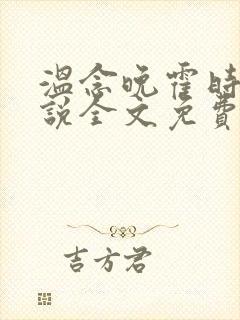 溫念晚霍時
說全文免費
吉方君